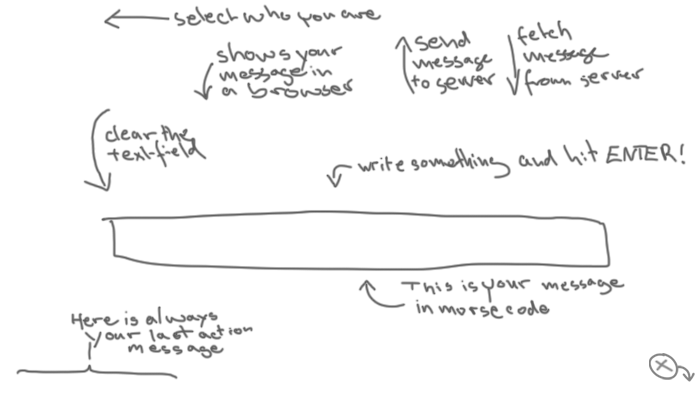 select who you are
shows your
message in
a browser
send
message
to server
fetch
message
from server
clear the
text-field
write something and hit ENTER!
This is your message
in morse code
Here is always
your last action
message
x